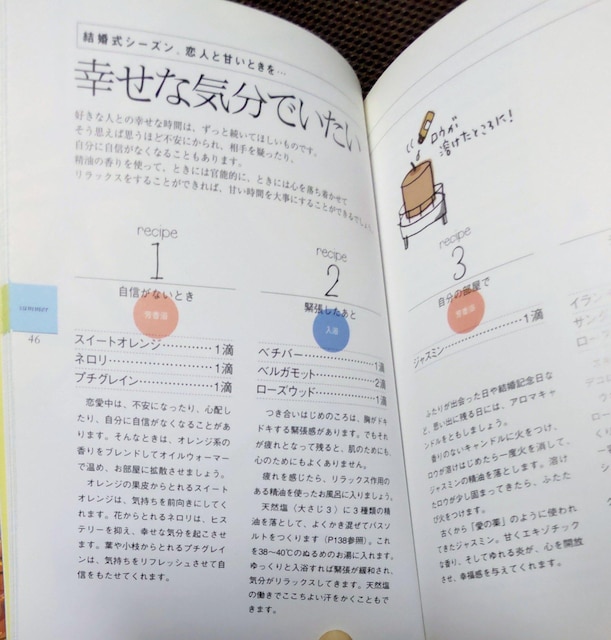 結婚式シーズン。恋人と甘いときを…
幸せな気分でいたい
好きな人との幸せな時間は、ずっと続いてほしいものです。
そう思えば思うほど不安にかられ、相手を疑ったり、
自分に自信がなくなることもあります。
精油の香りを使って、ときには官能的に、ときには心を落ち着かせて
リラックスをすることができれば、甘い時間を大事にすることができるでしょう。
summer
46
recipe
1
自信がないとき
芳香浴
スイートオレンジ………1滴
ネロリ………1滴
プチグレイン………1滴
恋愛中は、不安になったり、心配し
たり、自分に自信がなくなることがあ
ります。そんなときは、オレンジ系の
香りをブレンドしてオイルウォーマー
で温め、お部屋に拡散させましょう。
オレンジの果皮からとれるスイート
オレンジは、気持ちを前向きにしてく
れます。花からとれるネロリは、ヒス
テリーを抑え、幸せな気分を起こさせ
ます。葉や小枝からとれるプチグレイ
ンは、気持ちをリフレッシュさせて自
信をもたせてくれます。
recipe
2
緊張したあと
入浴
ベチバー………1滴
ベルガモット………2滴
ローズウッド………1滴
つき合いはじめのころは、胸がドキ
ドキする緊張感があります。でもそれ
が疲れとなって残ると、肌のためにも、
心のためにもよくありません。
疲れを感じたら、リラックス作用の
ある精油を使ったお風呂に入りましょう。
天然塩（大さじ3）に3種類の精
油を落として、よくかき混ぜてバスソ
ルトをつくります（P138参照）。これ
を38〜40℃のぬるめのお湯に入れます。
ゆっくりと入浴すれば緊張が緩和され、
気分がリラックスしてきます。天然塩
の働きでここちよい汗をかくこともで
きます。
ロウが
溶けたところに！
recipe
3
自分の部屋で
芳香浴
ジャスミン………1滴
ふたりが出会った日や結婚記念日な
ど、思い出に残る日には、アロマキャ
ンドルをともしましょう。
香りのないキャンドルに火をつけ、
ロウが溶けはじめたら一度火を消して、
ジャスミンの精油を落とします。溶け
たロウが少し固まってきたら、ふたた
び火をつけます。
古くから「愛の薬」のように使われ
てきたジャスミン。甘くエキゾチック
な香り、そしてゆれる炎が、心を開放
させ、幸福感を与えてくれます。
イラン
サンダ
ローズ